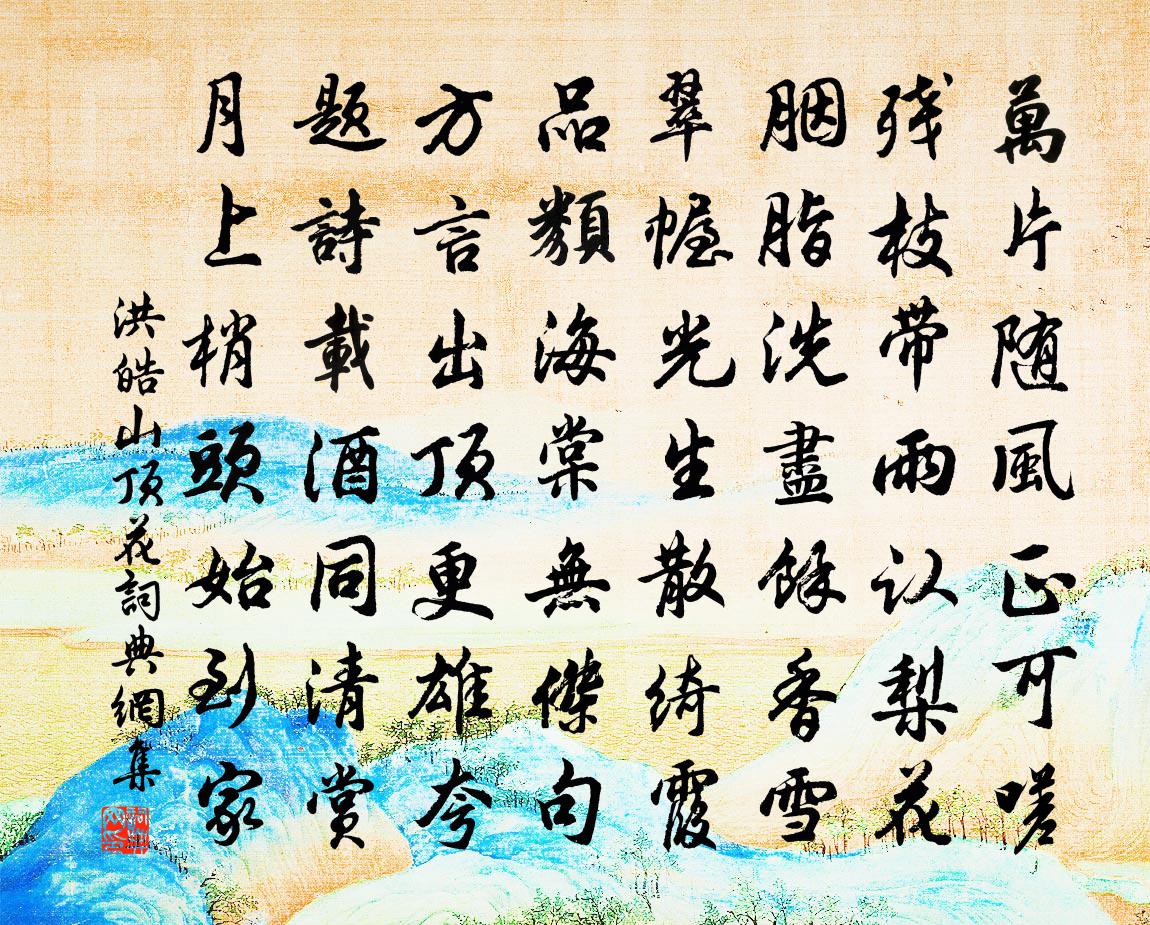 萬片随風正可嗟
残枝帯雨认梨花
胭脂洗盡餘香雪
翠幄光生散绮霞
品類海棠無傑句
方言出顶更雄夸
题詩載酒同清赏
月上梢頭始到家
洪皓山顶花詞典網集